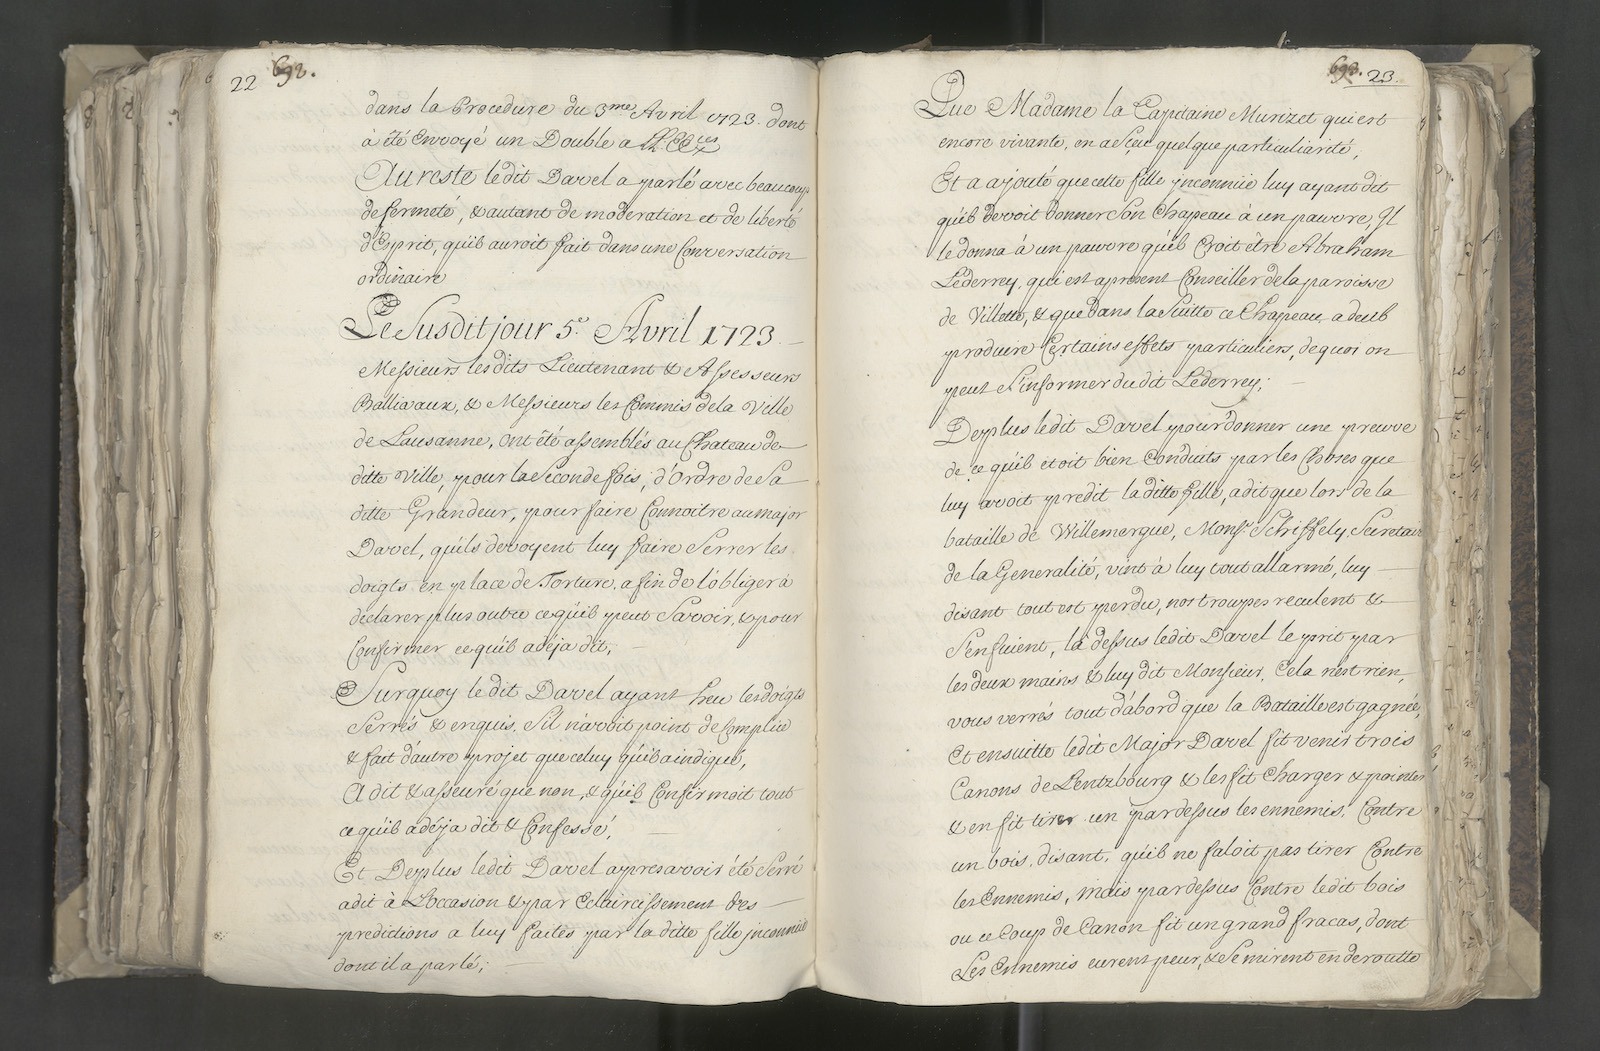 22 692.
dans la Procedure du 3me Avril 1723. dont
à été Envoyé un Double a LL. EEces
Au reste ledit Davel a parlé avec beaucoup
de fermeté, & autant de moderation et de liberté
d'Esprit, qu'il auroit fait dans une Conversation
ordinaire
Le Susdit jour 5e. Avril 1723.
Messieurs lesdits Lieutenant & Assesseurs
Ballivaux, & Messieurs les Commis de la Ville
de Lausanne, ont été assemblés au Chateau de
ditte Ville, pour la Seconde fois, d'Ordre de Sa
ditte Grandeur, pour faire Connoitre au major
Davel, qu'ils devoyent luy faire Serrer les
doigts en place de Torture, afin de l'obliger à
declarer plus outre ce qu'il peut Savoir, & pour
Confirmer ce qu'il a déja dit,
Surquoy ledit Davel ayant heu les doigts
Serrés & enquis, S'il n'avoit point de Complice
& fait d'autre projet que celuy qu'il a indiqué,
A dit & asseuré que non, & qu'il Confirmoit tout
ce qu'il a déja dit & Confessé,
Et Deplus ledit Davel apres avoir été Serré
a dit à L'occasion & par Eclaircissement des
predictions a luy faites par la ditte fille jnconnüe
dont il a parlé;
693. 23.
Que Madame la Capitaine Murizet qui est
encore vivante, en a Sceu quelque particuliarité,
Et a ajouté que cette fille jnconnüe luy ayant dit
qu'il devoit donner Son Chapeau à un pauvre, Jl
le donna à un pauvre qu'il Croit être Abraham
Lederrey, qui est apresent Conseiller de la paroisse
de Villette, & que dans la Suitte ce Chapeau a deub
produire Certains effets particuliers, dequoi on
peut S'informer du dit Lederrey;
Deplus ledit Davel pour donner une preuve
de ce qu'il étoit bien Conduits par les Choses que
luy avoit predit la ditte fille, a dit que lors de la
bataille de Willemergue, Monsr. Schiffely, Secretaire
de la Generalité, vint à luy tout allarmé, luy
disant tout est perdu, nos trouppes reculent &
S'enfuient, là dessus ledit Davel le prit par
les deux mains & luy dit Monsieur, Cela n'est rien,
vous verrés tout d'abord que la Bataille est gagnée,
Et ensuitte ledit Major Davel fit venir trois
Canons de Lentzbourg & les fit Charger & pointer
& en fit tirer un pardessus les ennemis, Contre
un bois, disant, qu'il ne faloit pas tirer Contre
les Ennemis, mais pardessus Contre ledit bois
ou ce Coup de Canon fit un grand fracas, dont
Les Ennemis eurent peur, & Se mirent en deroutte